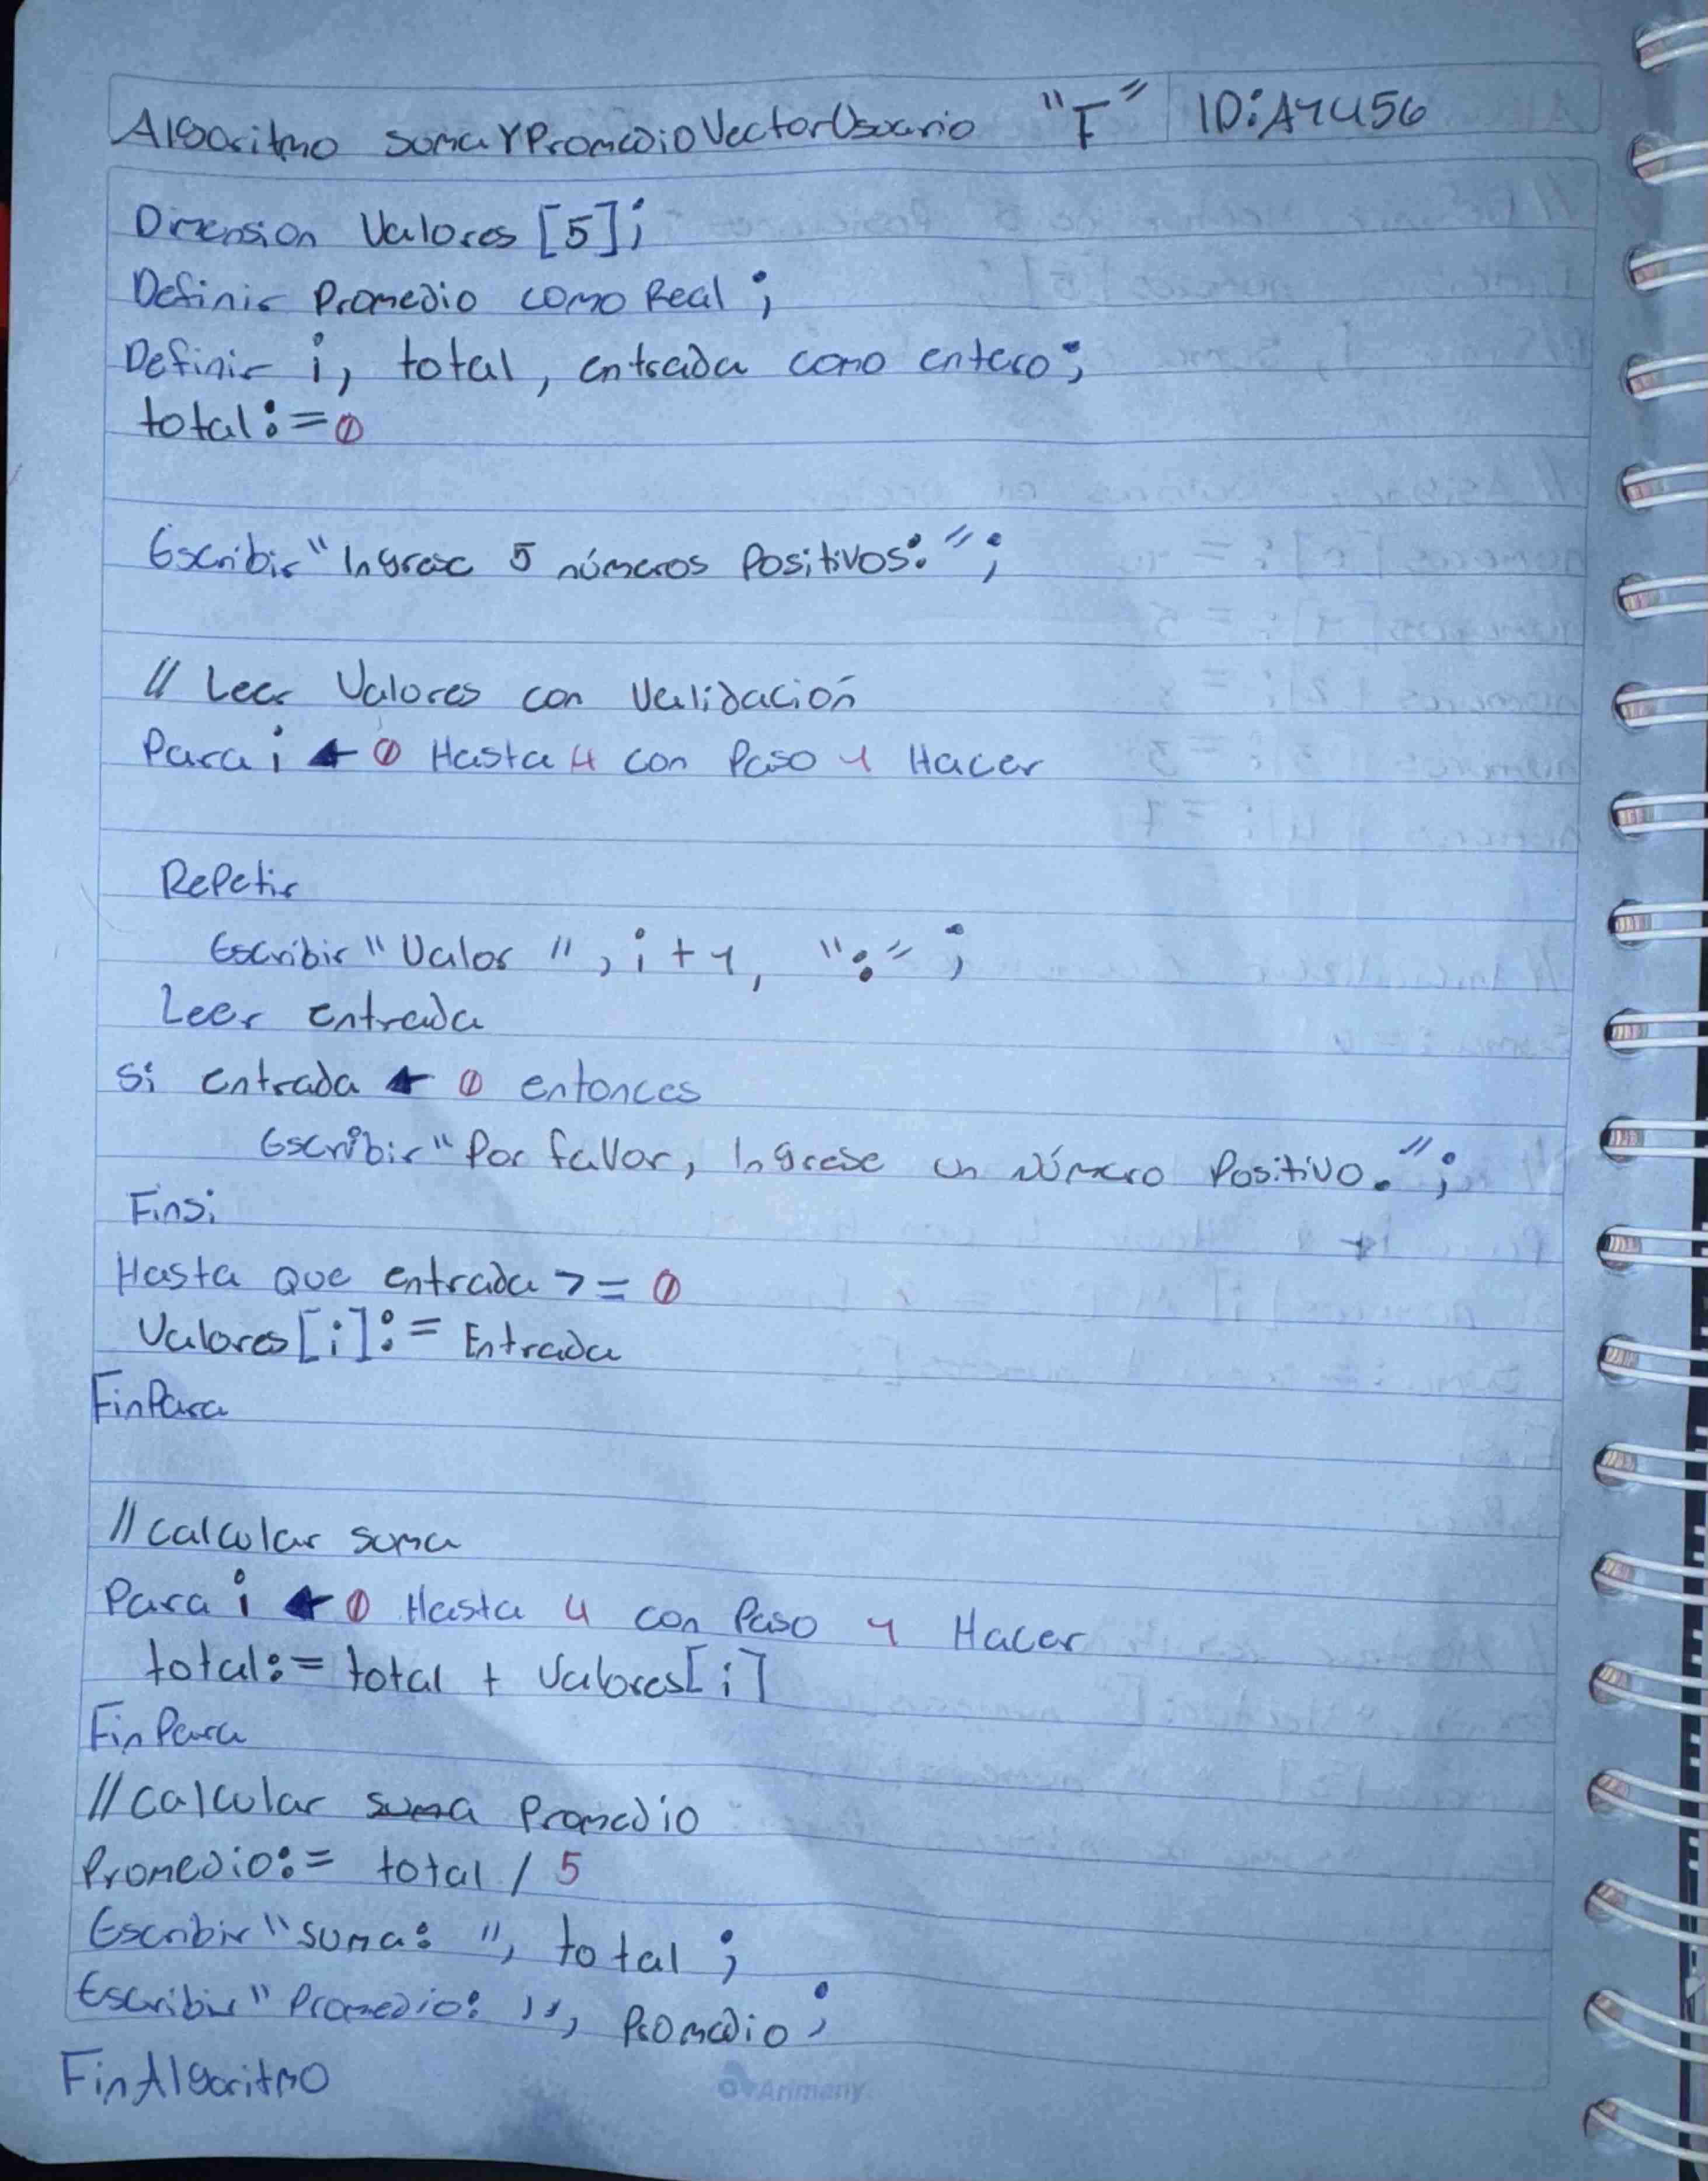 Algoritmo sumaYPromedioVectorUsuario "F" ID:A1456
Dimension Valores [5];
Definir Promedio como Real;
Definir i, total, entrada como entero;
total:=0
Escribir "Ingrese 5 números Positivos:";
// Leer Valores con Validación
Para i ← 0 Hasta 4 con Paso 1 Hacer
Repetir
Escribir "Valor ", i + 1, ":";
Leer entrada
Si entrada ← 0 entonces
Escribir "Por favor, Ingrese un Número Positivo.";
Finsi
Hasta Que entrada >= 0
Valores[i]:= Entrada
FinPara
//calcular suma
Para i ← 0 Hasta 4 con Paso 1 Hacer
total:= total + Valores[i]
FinPara
//calcular suma Promedio
Promedio:= total / 5
Escribir "suma: ", total;
Escribir "Promedio: ", Promedio;
FinAlgoritmo
Arimany